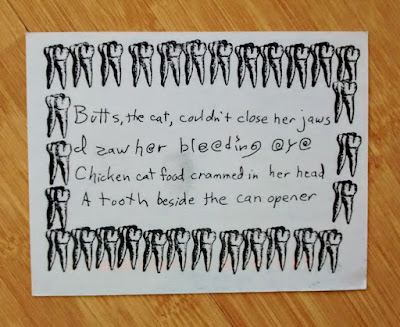 Butts, the cat, couldn't close her jaws
I zaw h@r bl@@ding @y@
Chicken cat food crammed in her head
A tooth beside the can opener